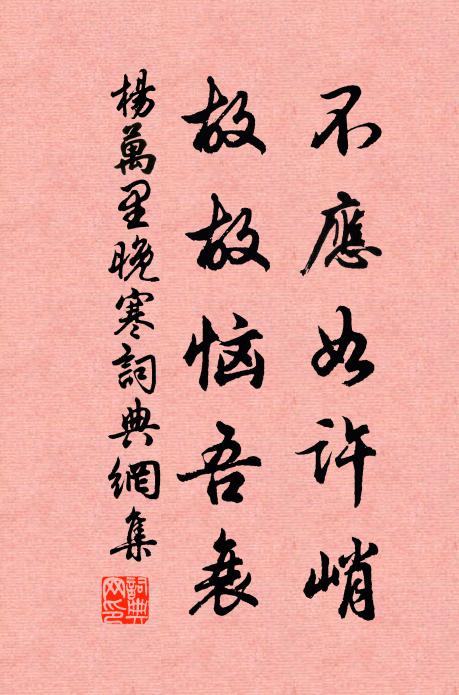 不應如許峭
故故惱吾衰
楊萬里晚寒詞典網集
詞典網印